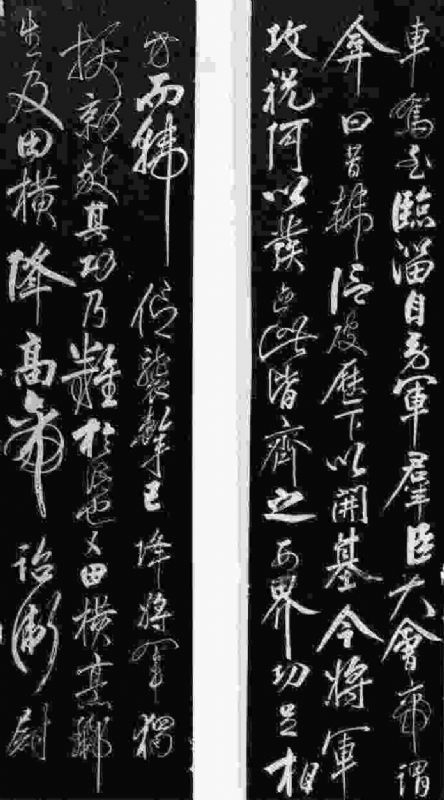 車駕至臨淄自勞軍羣臣大會帝謂
弇曰昔韓信破歷下以開基今將軍
攻祝阿以發迹此皆齊之西界功足相
方而韓信襲擊已降將軍獨
拔勍敵其功乃難於信也又田橫烹酈
生及田橫降高帝詔衛尉